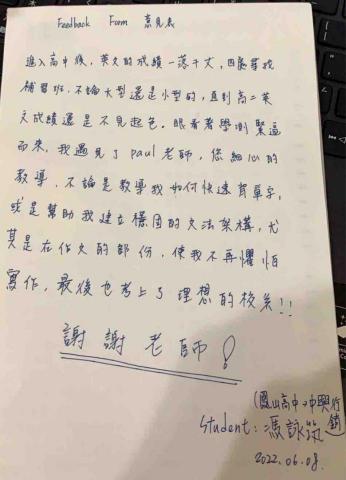 Feedback Form 意見表
進入高中後，英文的成績一落千丈，四處尋找
補習班，不論大型還是小型的，直到高二英
文成績還是不見起色。眼看著學測緊逼
而來，我遇見了paul老師，您細心的
教導，不論是教導我如何快速背單字，
或是幫助我建立穩固的文法架構，尤
其是在作文的部份，使我不再懼怕
寫作，最後也考上了理想的校系!!
謝謝老師！
(鳳山高中→中興行銷)
Student：馮詠筑
2022.06.08.